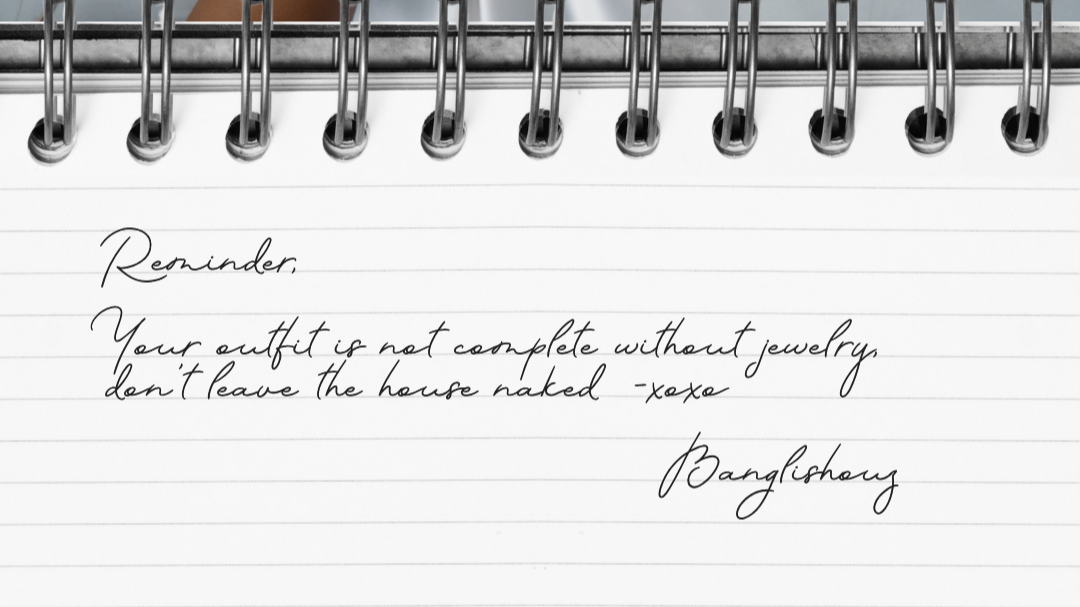 Reminder,
Your outfit is not complete without jewelry,
don't leave the house naked -xoxo
Banglishouz